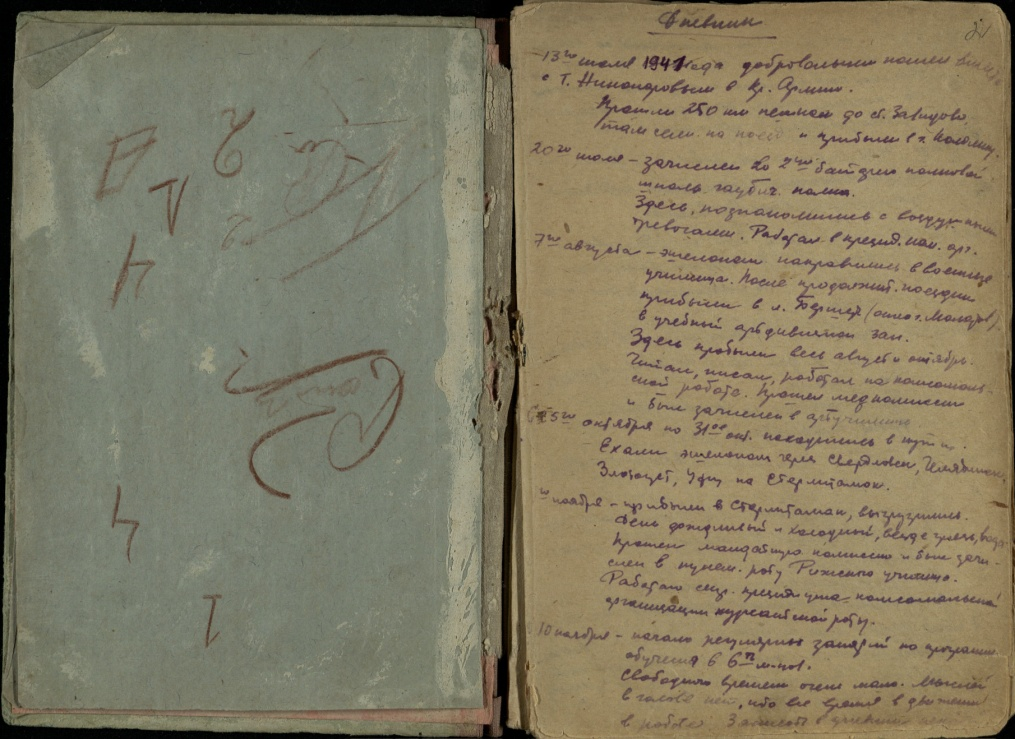 Дневник
13го июля 1941 года добровольцем пошел
с т. Никоноровым в Кр. Армию.
Прошли 250 км пешком до ст. Завидово
там сели на поезд и прибыли в г.
20го июля – зачислен во 2ую батарею полковой
школы гаубич. полка.
Здесь познакомились с воздушными
тревогами. Работал в
7го августа – эшелоном направились в военные
училища. После продолжит. поездки
прибыли в л. Бершет (около г. Молотов)
в учебный артдивизион зап.
Здесь пробыли весь август и октябрь.
Читал, писал, работал на комсомоль-
ской работе. Прошел медкомиссию
и был зачислен в артучилище.
октября по 31ое окт. находились в пути.
Ехали эшелоном через Свердловск, Челябинск,
Златоуст, Уфу на Стерлитамак.
ноября – прибыли в Стерлитамак, выгрузились.
День дождливый и холодный, везде грязь, вода.
Прошел мандатную комиссию и был зачи-
слен в пулем. роту Рижского училища.
Работаю секр. президиума комсомольской
организации курсантской роты.
10 ноября – начало регулярных занятий по программе
обучения в 6ть м-цов.
Свободного времени очень мало. Мыслей
в голове нет, ибо все время в движении
в работе.